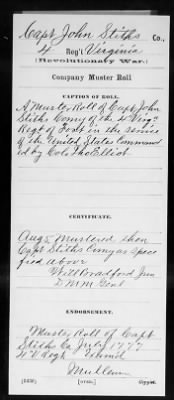 Capt John Stiths Co.,
4 Reg't Virginia
(Revolutionary War.)
Company Muster Roll
CAPTION OF ROLL.
A Muster Roll of Capt John
Stiths Comy of the 4 Virga
Regt of Foot in the service
of the United States Command
ed by Colo Tho Elliot
CERTIFICATE.
Aug 5 Mustered then
Capt Stiths Comy as speci
fied above
Will Bradford Jun
D.M.M. Genl
ENDORSEMENT.
Muster Roll of Capt
Stiths Co July 1777
4 V Regt
Copyist.